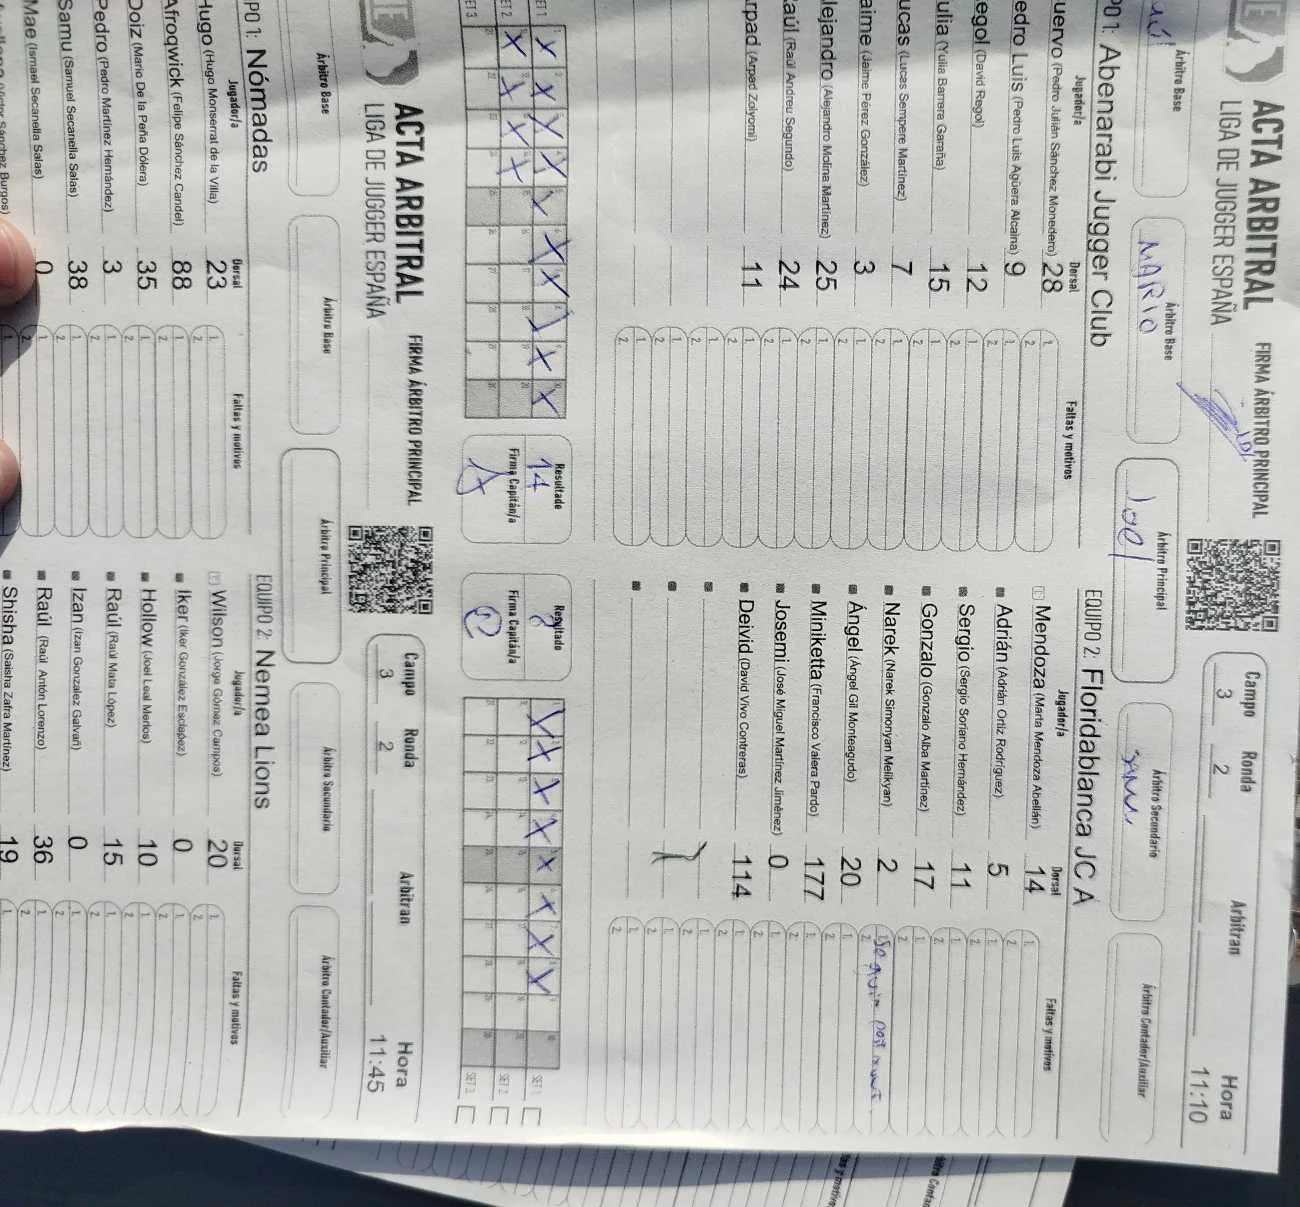 ACTA ARBITRAL
LIGA DE JUGGER ESPAÑA
FIRMA ÁRBITRO PRINCIPAL
Campo Ronda Arbitran Hora
3 2 11:10
Árbitro Base Árbitro Base Árbitro Principal Árbitro Secundario Árbitro Contador/Auxiliar
MARIO Joel
PO 1: Abenarabi Jugger Club
Jugador/a Dorsal Faltas y motivos
uervo (Pedro Julián Sánchez Monedero) 28
edro Luis (Pedro Luis Agüera Alcaina) 9
egol (David Regol) 12
ulia (Yulia Barrera Garaña) 15
ucas (Lucas Sempere Martínez) 7
aime (Jaime Pérez González) 3
lejandro (Alejandro Molina Martínez) 25
aúl (Raúl Andreu Segundo) 24
rpad (Arpad Zolyomi) 11
EQUIPO 2: Floridablanca JC A
Jugador/a Dorsal Faltas y motivos
Mendoza (Marta Mendoza Abellán) 14
Adrián (Adrián Ortiz Rodríguez) 5
Sergio (Sergio Soriano Hernández) 11
Gonzalo (Gonzalo Alba Martínez) 17
Narek (Narek Simonyan Melikyan) 2
Ángel (Ángel Gil Monteagudo) 20
Miniketta (Francisco Valera Pardo) 177
Josemi (José Miguel Martínez Jiménez) 0
Deivid (David Vivo Contreras) 114
Resultado 14
Firma Capitán/a
Resultado 8
Firma Capitán/a
SET 1
SET 2
SET 3
ACTA ARBITRAL
LIGA DE JUGGER ESPAÑA
FIRMA ÁRBITRO PRINCIPAL
Campo Ronda Arbitran Hora
3 2 11:45
Árbitro Base Árbitro Base Árbitro Principal Árbitro Secundario Árbitro Contador/Auxiliar
PO 1: Nómadas
Jugador/a Dorsal Faltas y motivos
Hugo (Hugo Monserrat de la Villa) 23
Afroqwick (Felipe Sánchez Candel) 88
Doiz (Mario De la Peña Dólera) 35
Pedro (Pedro Martínez Hernández) 3
Samu (Samuel Secanella Salas) 38
Mae (Ismael Secanella Salas) 0
EQUIPO 2: Nemea Lions
Jugador/a Dorsal Faltas y motivos
Wilson (Jorge Gómez Campos) 20
Iker (Iker González Esclapez) 0
Hollow (Joel Leal Merlos) 10
Raúl (Raúl Mata López) 15
Izan (Izan Gonzalez Galvañ) 0
Raúl (Raúl Antón Lorenzo) 36
Shisha (Saisha Zafra Martínez) 19